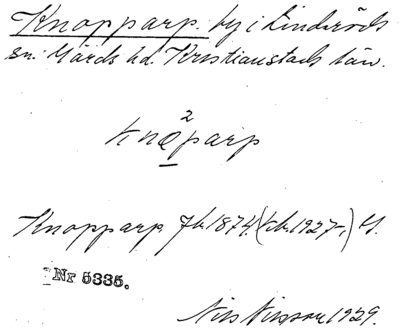 Knopparp. by i Linderöds
sn. Gärds hd. Kristianstads län.
2
knɷparp
Knopparp Jb. 1874. 1927
Nr 5335.
Nils Nilsson 1929.